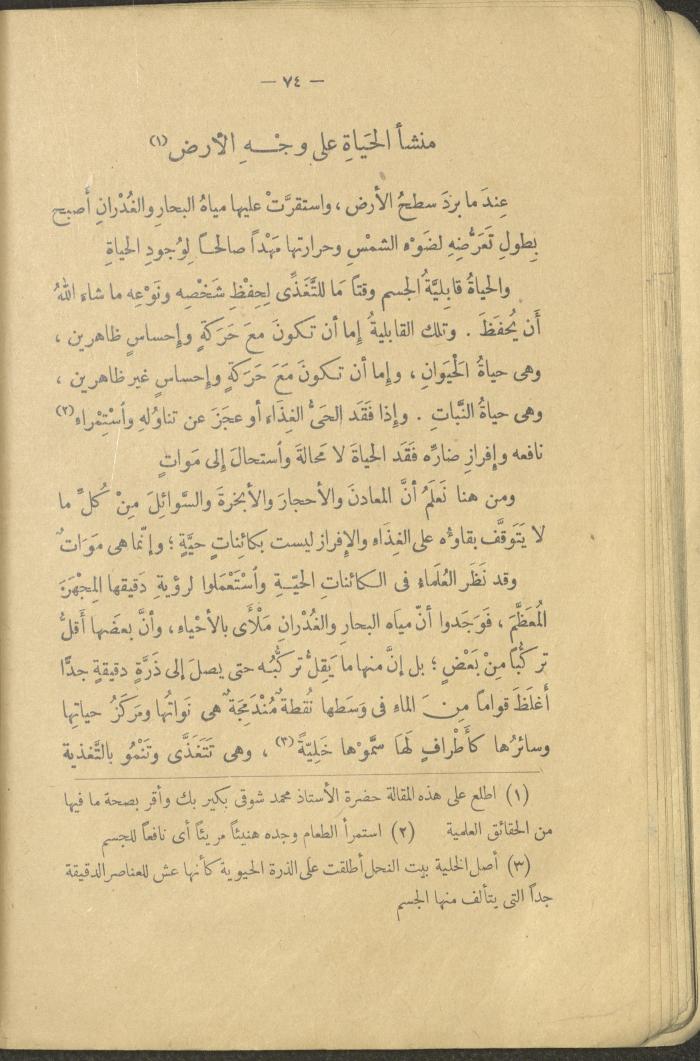 — ٧٤ —
منشأ الحَياةِ على وجْـهِ الأرض (١)
عِندَ ما بردَ سطحُ الأرض ، واستقرَّتْ عليها مياهُ البحارِ والغُدْرانِ أَصبح
بِطولِ تَعَرُّضِهِ لضَوْءِ الشمْسِ وحرارتها مَهْداً صالحاً لِوُجودِ الحياةِ
والحياةُ قابِليَّةُ الجسم وقتاً مَا للتَّغَذِّى لِحِفْظِ شَخْصِه ونَوْعِه ما شاء اللهُ
أَن يُحفَظَ . وتلك القابليةُ إِما أن تكونَ مَعَ حَرَكَةٍ وإِحساسٍ ظاهرين ،
وهى حياةُ الْحَيَوانِ ، وإِما أن تكونَ مَعَ حَرَكَةٍ وإِحساسٍ غير ظاهرين ،
وهى حياةُ النَّباتِ . وإِذا فَقَد الحَىُّ الغِذَاءَ أو عجَزَ عن تناوُلهِ وأسْتِمْراء (٢)
نافعه وإِفرازِ ضارِّه فَقَد الحياةَ لا مَحالةَ وأستحالَ إلى مَواتٍ
ومن هنا نَعلَمُ أنَّ المعادنَ والأحجارَ والأبخرةَ والسَّوائِلَ مِنْ كُلِّ ما
لا يَتَوقَّف بقاؤُه على الغِذَاءِ والإِفراز ليست بكائِناتٍ حيَّةٍ ؛ وإنّما هى مَوَاتٌ
وقد نَظَر العُلَماءُ فى الكائناتِ الحيّةِ وأسْتَعْمَلوا لرؤيةِ دَقيقها المِجْهَرَ
المُعَظِّمَ ، فَوَجَدوا أنّ مياه البحارِ والغُدْرانِ مَلْأَى بالأحْياءِ ، وأنَّ بعضَها أقلُّ
تركُّباً مِنْ بَعْضٍ ؛ بل إنَّ منها ما يَقِلُّ تركُّبُه حتى يصلَ إلى ذَرَّةٍ دقيقةٍ جدًّا
أَغلَظَ قِواماً مِنَ الماءِ فى وَسَطها نُقطةٌ مُنْدَمِجَةٌ هى نَواتُها ومَركَزُ حياتِها
وسائرُها كأَطْرافٍ لَهَا سمَّوْها خَلِيَّةً (٣) ، وهى تَتَغَذَّى وتَنْمُو بالتَّغذية
(١) اطلع على هذه المقالة حضرة الأستاذ محمد شوقى بكير بك وأقر بصحة ما فيها
من الحقائق العلمية (٢) استمرأ الطعام وجده هنيئاً مريئاً أى نافعاً للجسم
(٣) أصل الخلية بيت النحل أطلقت على الذرة الحيوية كأنها عش للعناصر الدقيقة
جداً التى يتألف منها الجسم